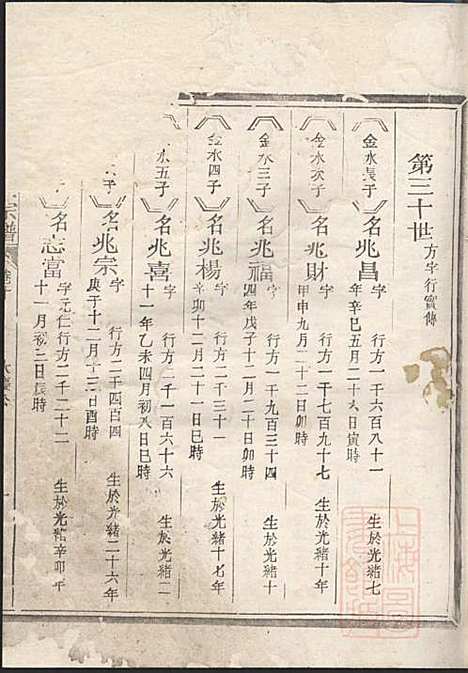 第三十世方字行實傳
金水長子
名兆昌字 行方一千六百八十一 生於光緒七
年辛巳五月二十九日寅時
金水次子
名兆財字 行方一千七百九十七 生於光緒十年
甲申九月二十二日卯時
金水三子
名兆福字 行方一千九百三十四 生於光緒十
四年戊子十二月二十日卯時
金水四子
名兆楊字 行方二千三十一 生於光緒十七年
辛卯十二月二十一日巳時
水五子
名兆喜字 行方二千一百六十六 生於光緒二
十一年乙未四月初八日巳時
子
名兆宗字 行方二千四百四 生於光緒二十六年
庚子十二月十三日酉時
名志富字元仁行方二千二十二 生於光緒辛卯年
十一月初二日辰時
宗譜